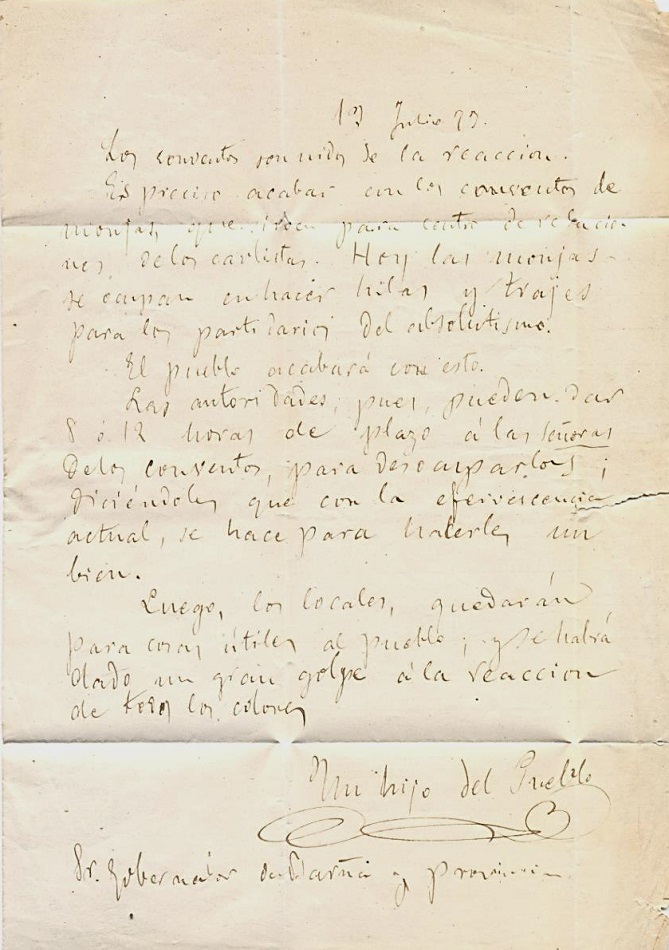 Julio 73.
Los conventos son nidos de la reaccion.
Es preciso acabar con los conventos de
monjas, que sirven para centro de relacio
nes, delos carlistas. Hoy las monjas
se ocupan en hacer hilas y trajes
para los partidarios del absolutismo.
El pueblo acabará con esto.
Las autoridades, pues, pueden dar
8 ó 12 horas de plazo á las señoras
Delos conventos, para desocuparlos;
diciéndoles que con la efervescencia
actual, se hace para haterles un
bien.
Luego, los locales, quedarán
para cosas útiles al pueblo; y se habrá
dado un gran golpe á la reaccion
de todos los colores
Un hijo del Pueblo
Sr. Gobernador de y provincia